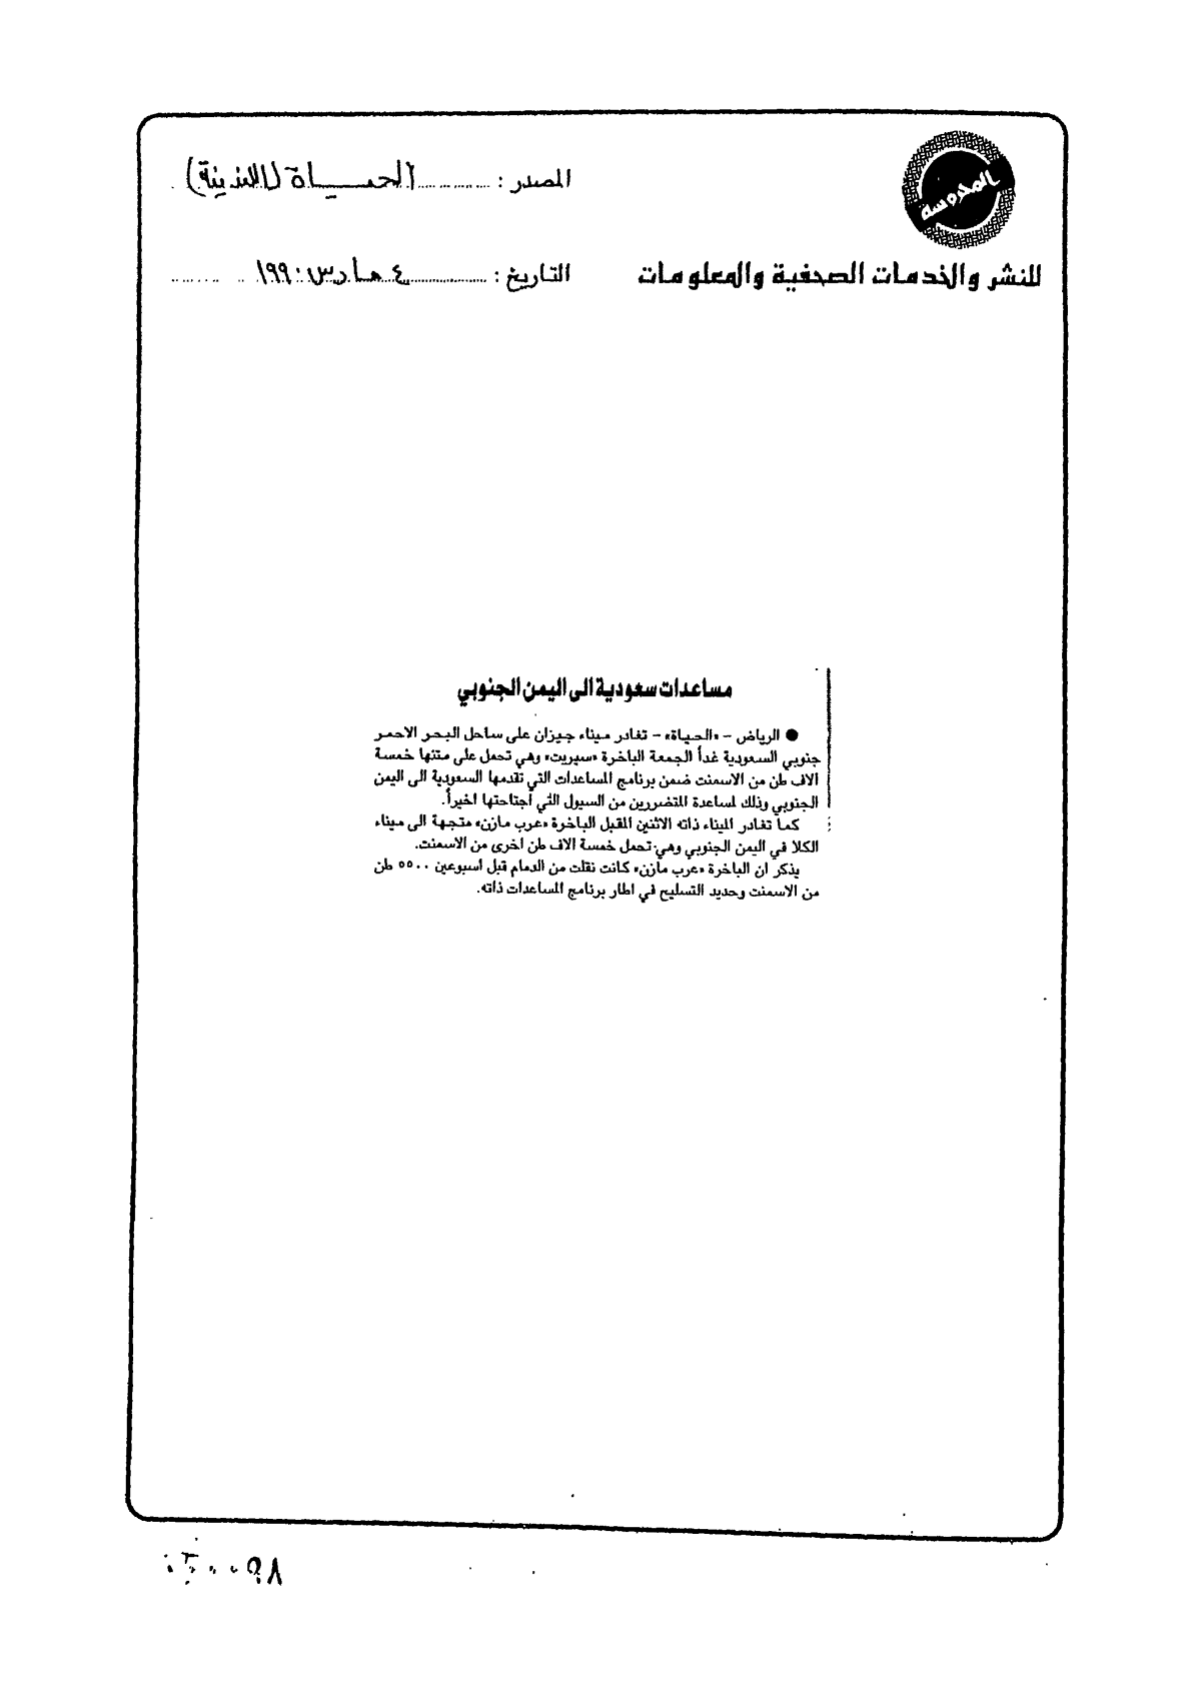 المحروسة
المصدر : الحياة (اللندنية)
للنشر والخدمات الصحفية والمعلومات
التاريخ : ٤ مارس ١٩٩٠
مساعدات سعودية الى اليمن الجنوبي
● الرياض - «الحياة» - تغادر ميناء جيزان على ساحل البحر الاحمر
جنوبي السعودية غداً الجمعة الباخرة «سبريت» وهي تحمل على متنها خمسة
الاف طن من الاسمنت ضمن برنامج المساعدات التي تقدمها السعودية الى اليمن
الجنوبي وذلك لمساعدة المتضررين من السيول التي اجتاحتها اخيراً.
كما تغادر الميناء ذاته الاثنين المقبل الباخرة «عرب مازن» متجهة الى ميناء
الكلا في اليمن الجنوبي وهي تحمل خمسة الاف طن اخرى من الاسمنت.
يذكر ان الباخرة «عرب مازن» كانت نقلت من الدمام قبل اسبوعين ٥٥٠٠ طن
من الاسمنت وحديد التسليح في اطار برنامج المساعدات ذاته.